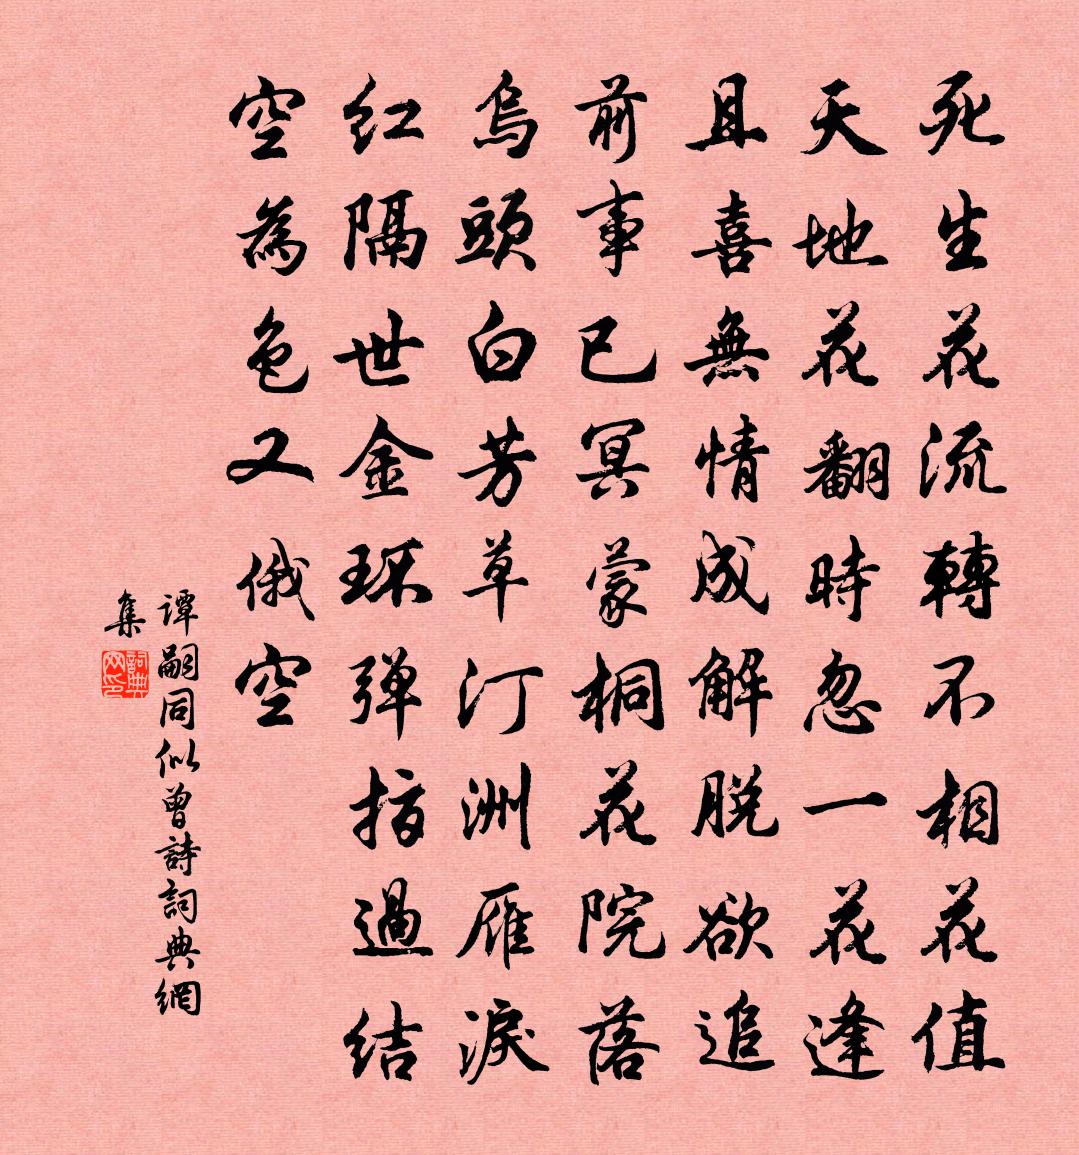 死生花流轉不相花值
天地花翻時忽一花逢
且喜無情成解脱欲追
前事已冥蒙桐花院落
烏頭白芳草汀洲雁淚
红隔世金环弹指過结
空為色又俄空
谭嗣同似曾詩詞典網
集
詞典网印